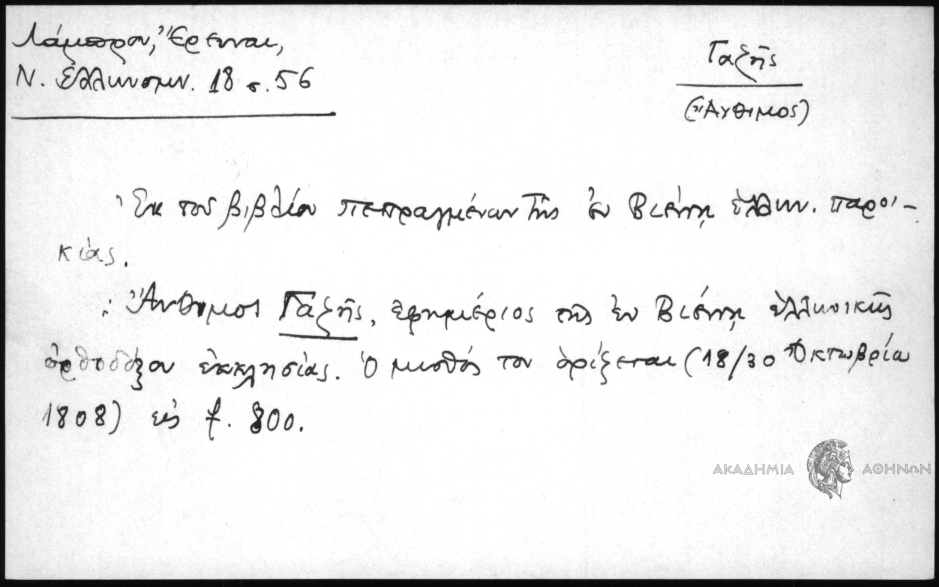 Λάμπρου, Ἔρευναι,
Ν. Ἑλληνομν. 18 σ. 56
Γαζῆς
(Ἄνθιμος)
Ἐκ τοῦ βιβλίου πεπραγμένων τῆς ἐν Βιέννῃ ἑλλην. παροι-
κίας.
: Ἄνθιμος Γαζῆς, ἐφημέριος τῆς ἐν Βιέννῃ ἑλληνικῆς
ὀρθοδόξου ἐκκλησίας. Ὁ μισθός του ὁρίζεται (18/30 Ὀκτωβρίου
1808) εἰς f. 800.
ΑΚΑΔΗΜΙΑ ΑΘΗΝΩΝ